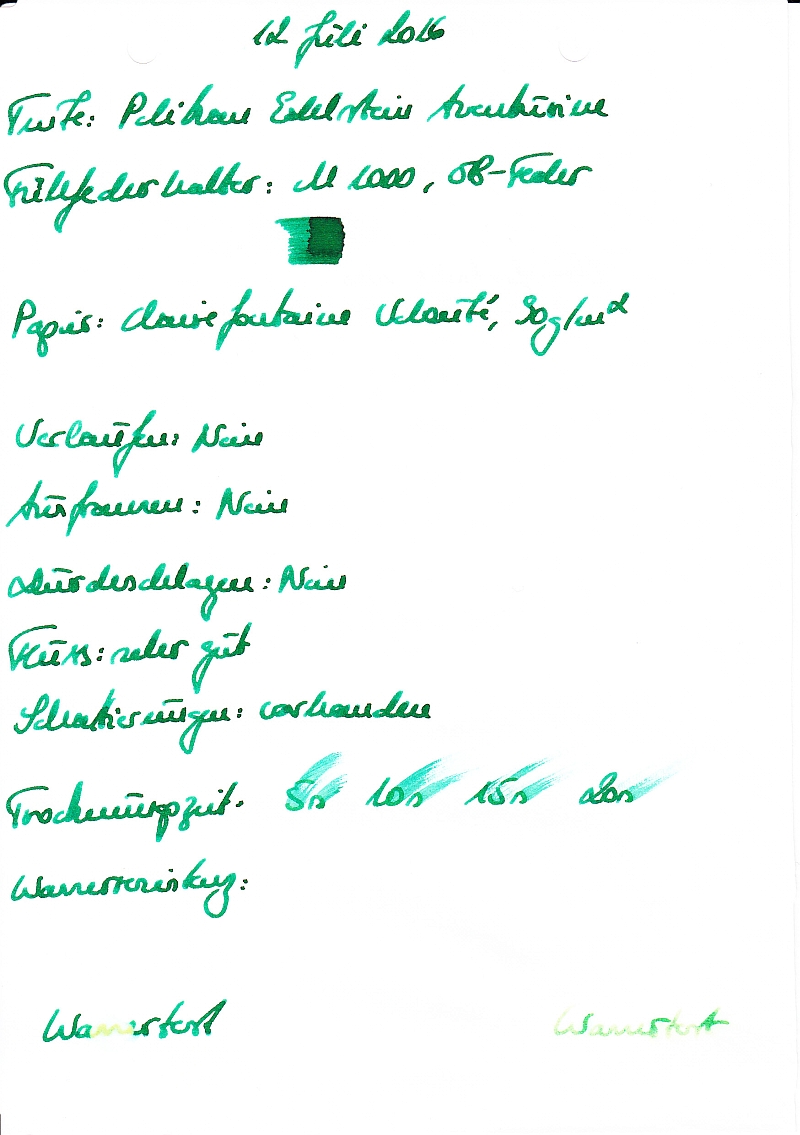 12 Juli 2016
Tinte: Pelikan Edelstein Aventurine
Füllfederhalter: M 1000, OB-Feder
Papier: Clairefontaine Velouté, 90g/m²
Verlaufen: Nein
Ausfransen: Nein
Durchschlagen: Nein
Fluss: sehr gut
Schattierungen: vorhanden
Trocknungszeit: 5s 10s 15s 20s
Wasserresistenz:
Wassertest Wassertest